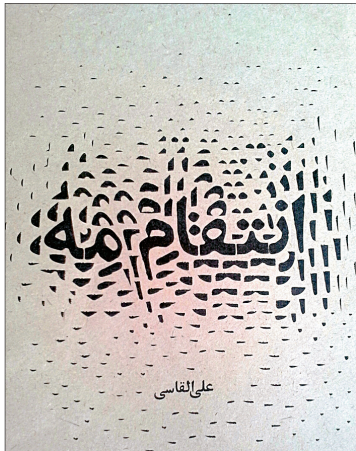 انتقام مه
علی القاسی